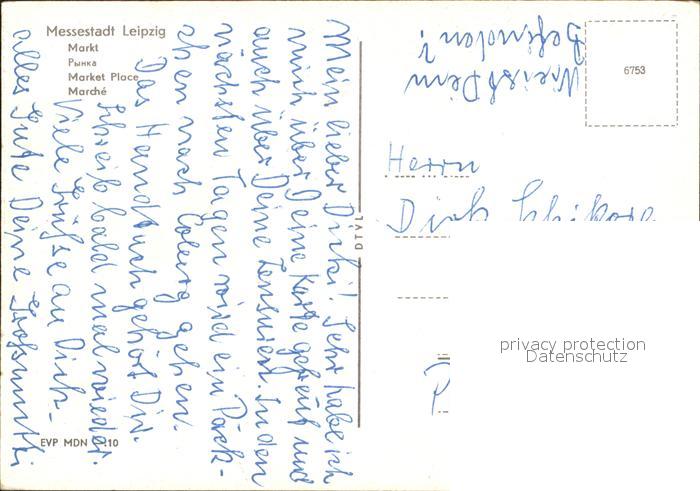 Messestadt Leipzig
Markt
Рынка
Market Place
Marché
6753
Mein lieber Dirki! Sehr habe ich
mich über Deine Karte gefreut und
auch über Deine Zensuren. In den
nächsten Tagen wird ein Päck-
chen nach Coburg gehen.
Das Handtuch gehört Dir.
Schreib bald mal wieder.
Viele Grüße an Dirk-
alles Gute Deine Großmutti
Wie ist Dein
Befinden?
DTVL
Herrn
Dirk
EVP MDN 10
privacy protection
Datenschutz